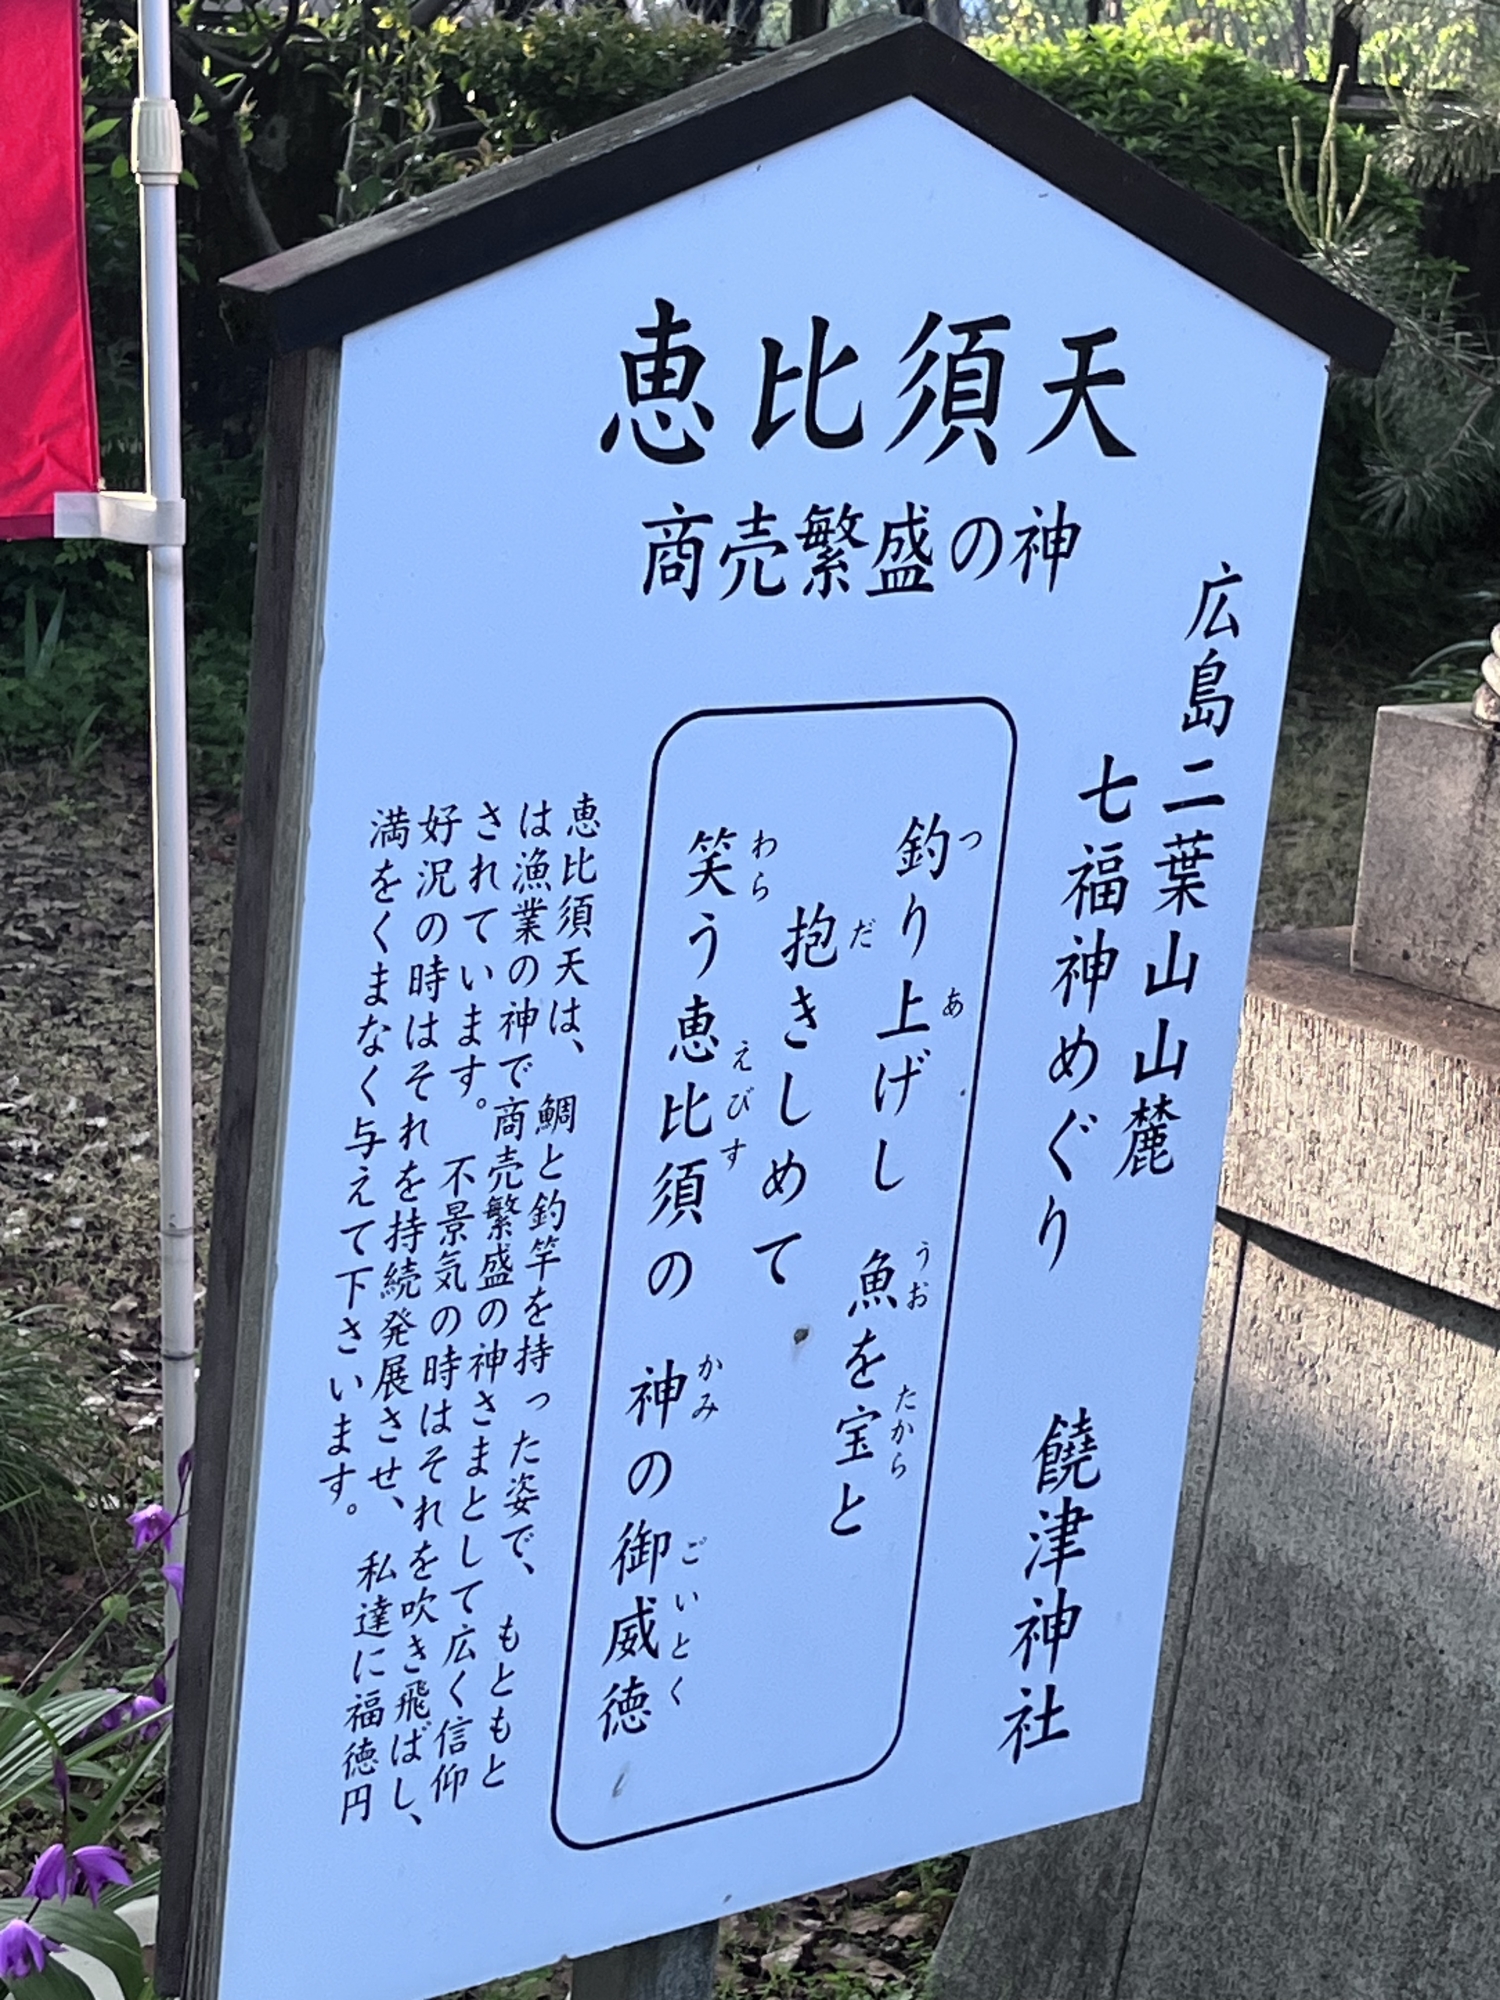 恵比須天
商売繁盛の神
広島二葉山山麓
七福神めぐり
饒津神社
釣り上げし 魚を宝と
つ あ うお たから
抱きしめて
だ
笑う恵比須の 神の御威徳
わら えびす かみ ごいとく
恵比須天は、鯛と釣竿を持った姿で、もともと
は漁業の神で商売繁盛の神さまとして広く信仰
されています。不景気の時はそれを吹き飛ばし、
好況の時はそれを持続発展させ、私達に福徳円
満をくまなく与えて下さいます。